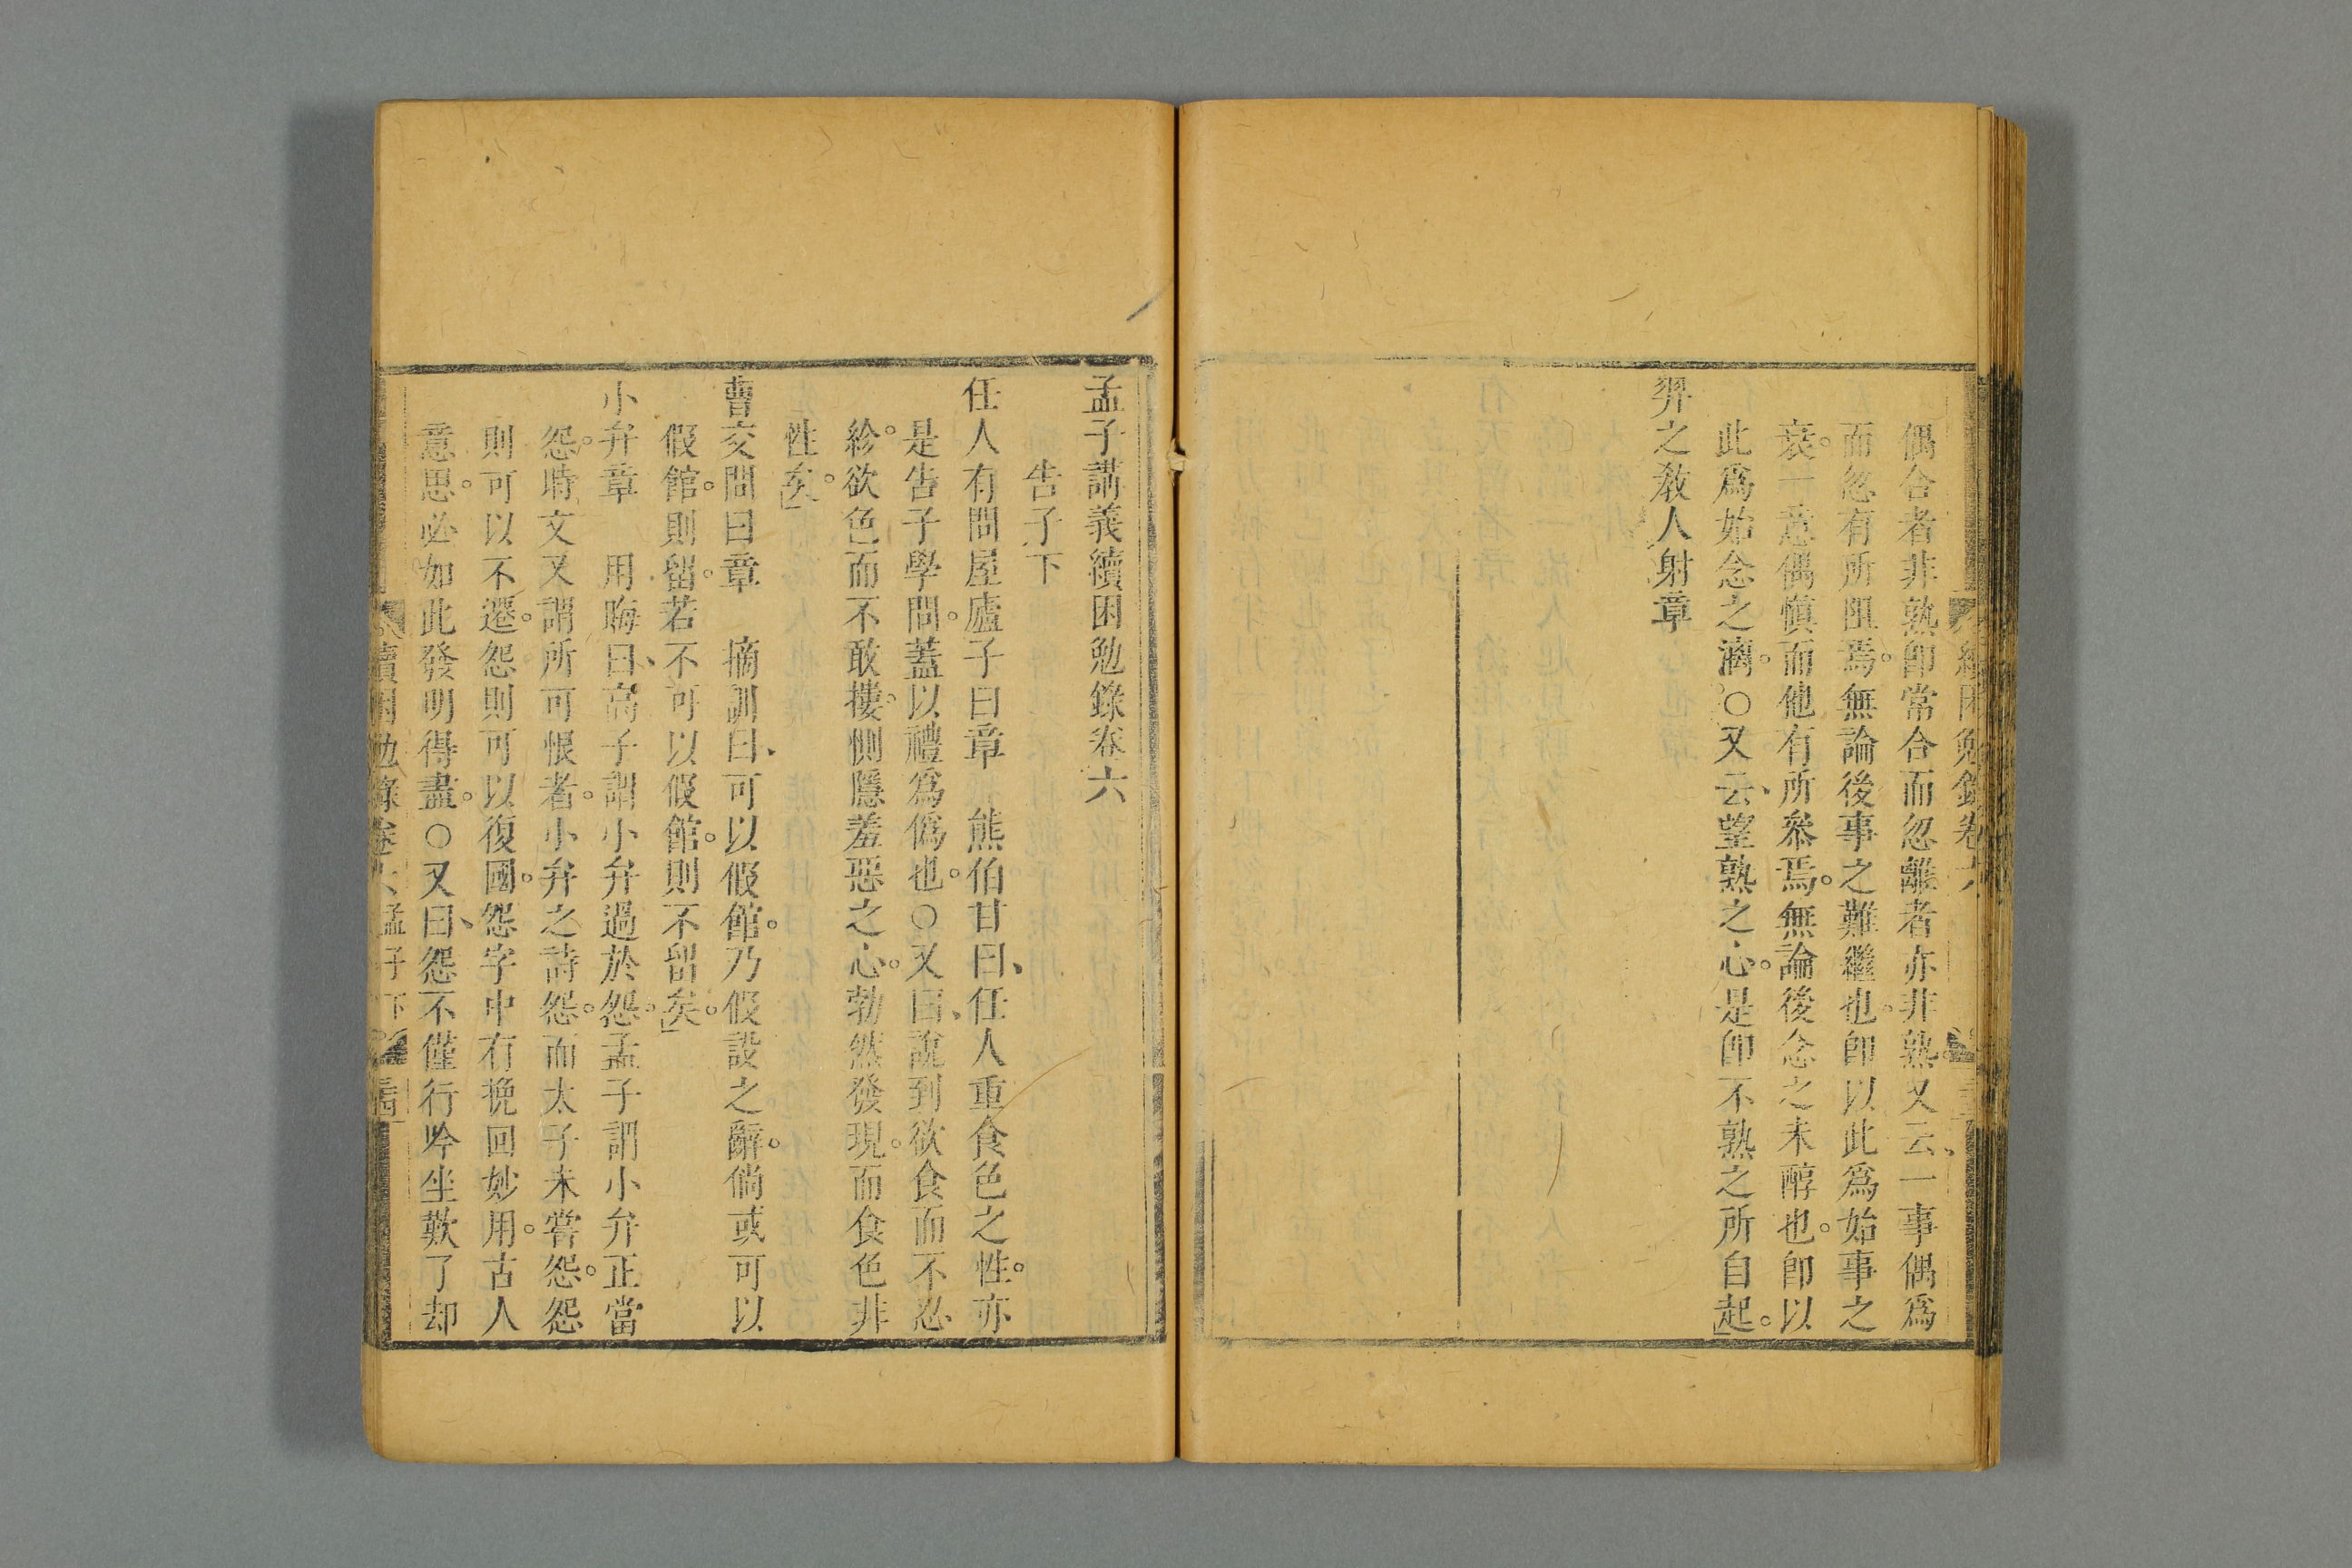 偶合者非熟卽常合而忽離者亦非熟又云、一事偶爲
而忽有所阻焉。無論後事之難繼也。卽以此爲始事之
衰。一意偶愼而他有所叅焉。無論後念之未醇也。卽以
此爲始念之漓。○又云、望熟之心。是卽不熟之所自起。
羿之敎人射章
孟子講義續困勉錄卷六
告子下
任人有問屋廬子曰章　熊伯甘曰、任人重食色之性。亦
是告子學問。蓋以禮爲僞也。○又曰、說到欲食而不忍
紾。欲色而不敢摟。惻隱羞惡之心。勃然發現。而食色非
性矣。
曹交問曰章　摘訓曰、可以假館。乃假設之辭。倘或可以
假館。則留。若不可以假館。則不留矣。
小弁章　用晦曰、高子謂小弁過於怨。孟子謂小弁正當
怨。時文又謂所可恨者。小弁之詩怨。而太子未嘗怨。怨
則可以不遷。怨則可以復國。怨字中有挽回妙用。古人
意思。必如此發明得盡。○又曰、怨不僅行吟坐歎了却
續困勉錄卷六 孟子下